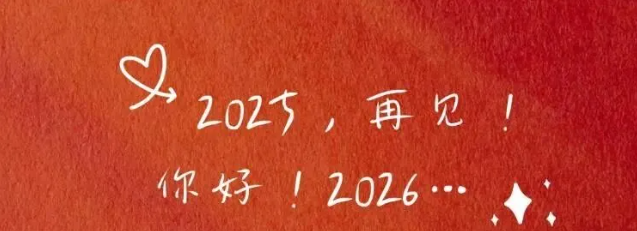 2025，再见！
你好！2026…